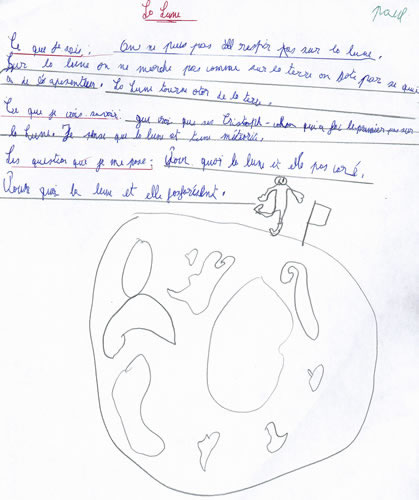 La Lune
paul
Ce que je sais : On ne peus pas respir pas sur la lune.
Sur la lune on ne marche pas comme sur la terre on sote par se qui
a de l'apesenteur. La lune tourn otor de la terre.
Ce que je crois savoir : que soi que ses Cristoph-colom qui a fai le premier pas sur
la Lune. Je panse que la lune et une météorie.
Les question que je me pose : Pour quoi la lune et elle pas caré.
Pour quoi la lune et elle fosforésént.